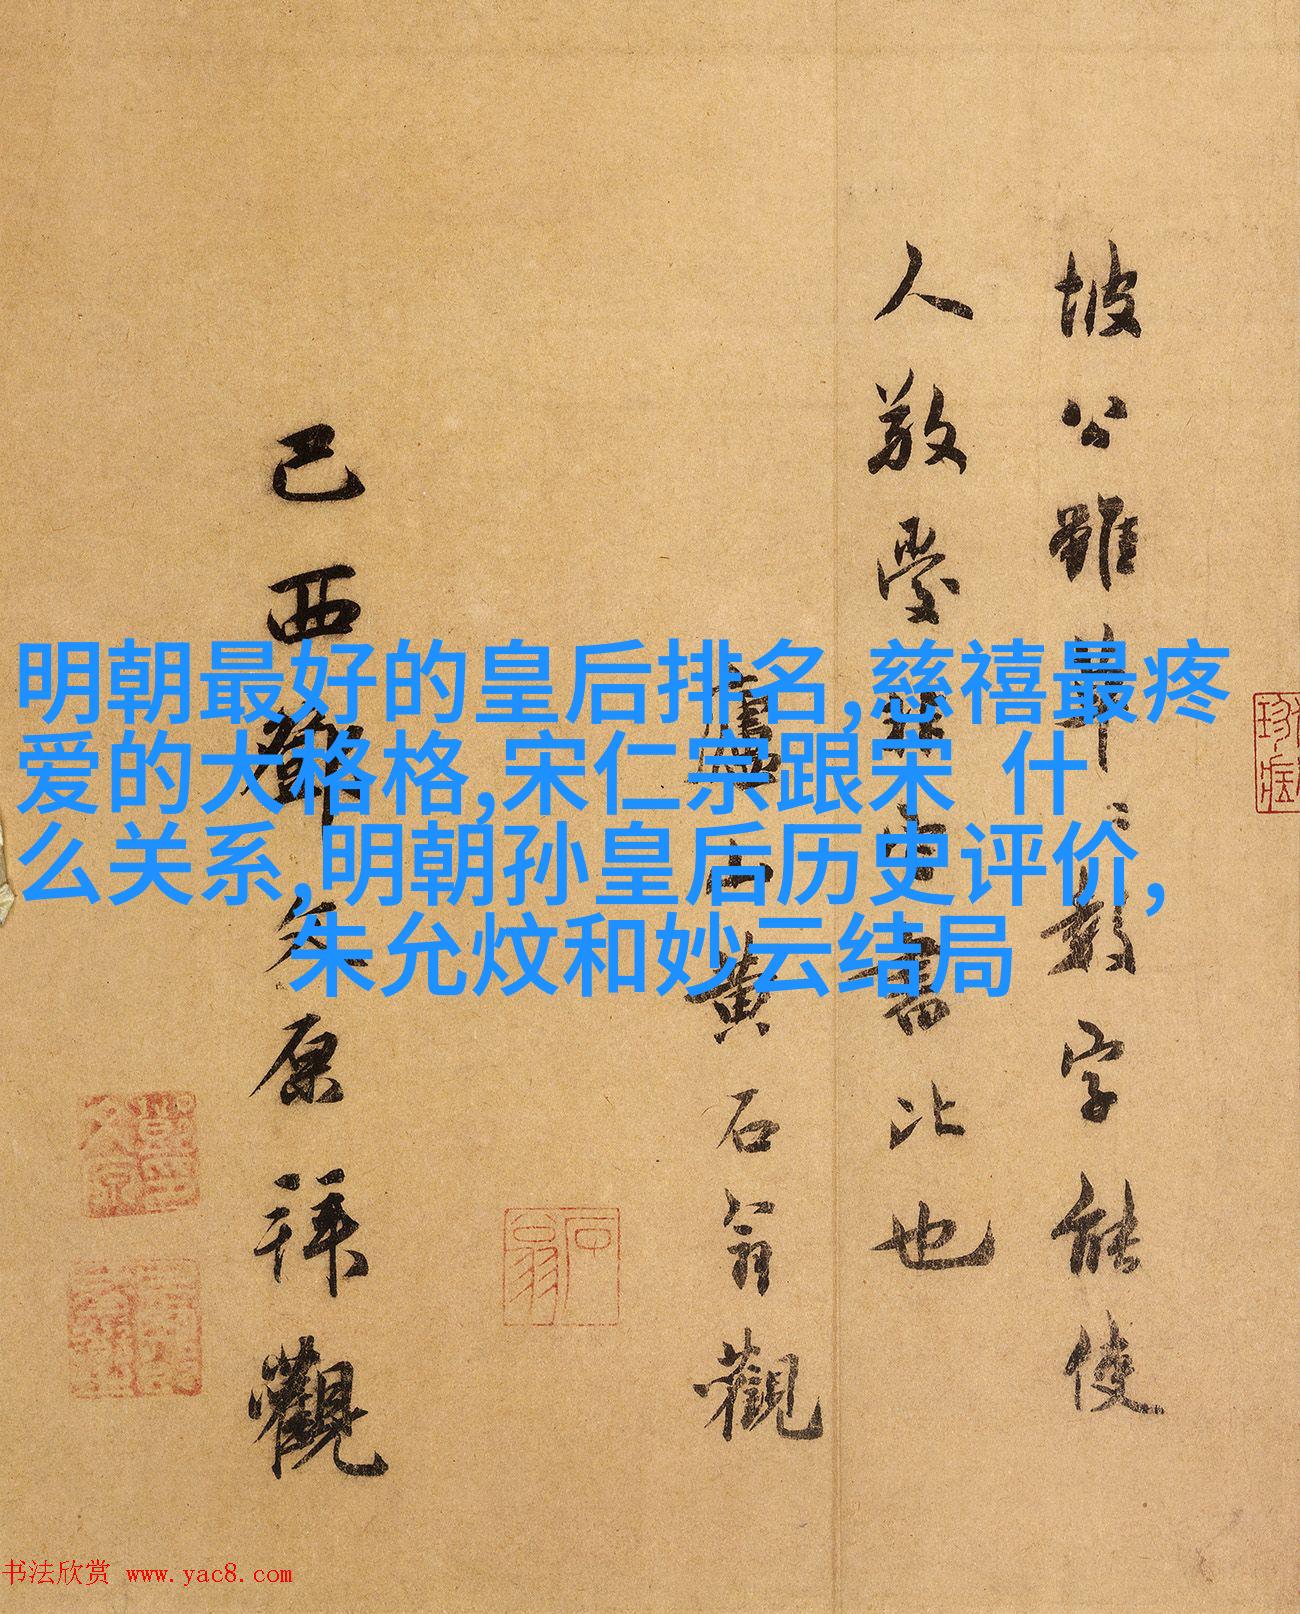 坡公雖草草數字能使
人敬愛
書此也
黃石翁觀
己酉鄧文原拜觀
明朝最好的皇后排名,慈禧最疼
爱的大格格,宋仁宗跟宋 什
么关系,明朝孙皇后历史评价,
朱允炆和妙云结局
石翁
书法欣赏 www.yac8.com